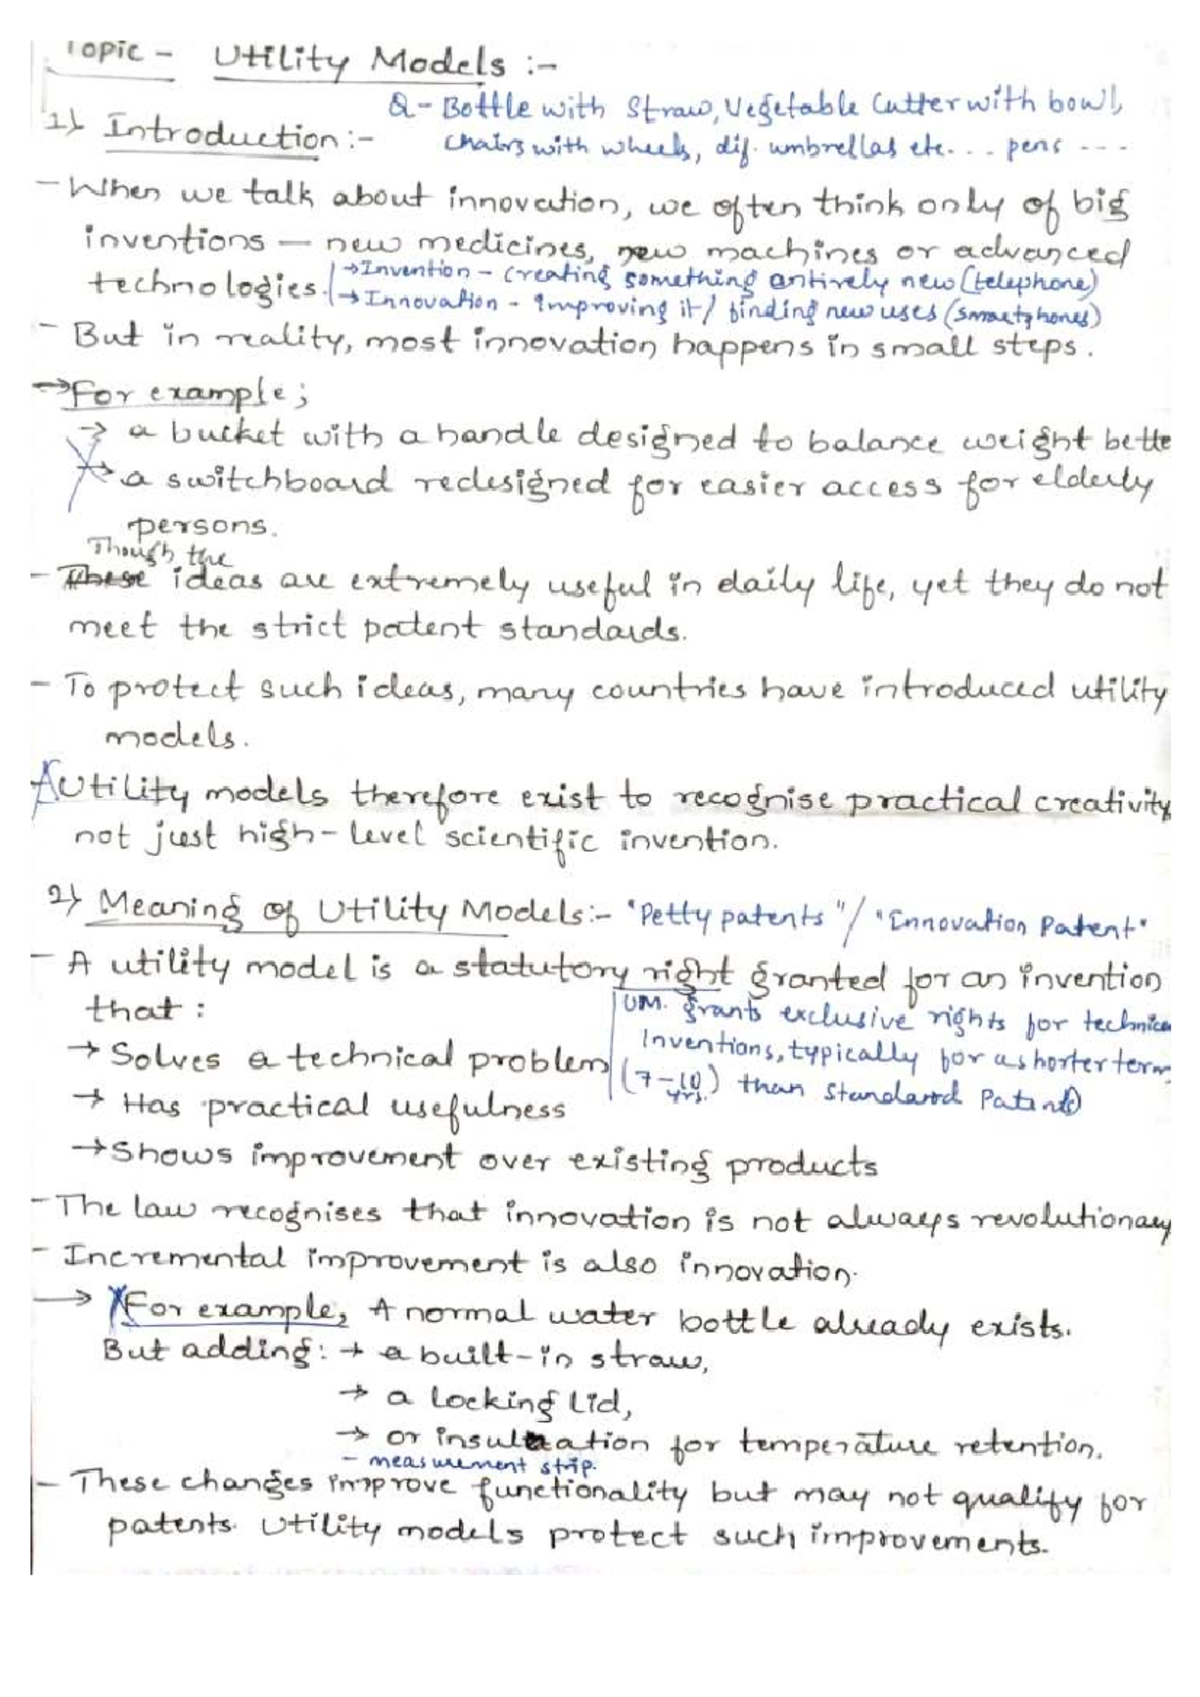 Topic - Utility Models :-
Q - Bottle with Straw, Vegetable Cutter with bowl,
1) Introduction :-
Chairs with wheels, dif. umbrellas etc... pens ---
- When we talk about innovation, we often think only of big
inventions — new medicines, new machines or advanced
technologies.
→ Invention - creating something entirely new (telephone)
→ Innovation - improving it / finding new uses (smartphones)
- But in reality, most innovation happens in small steps.
→ For example ;
→ a bucket with a handle designed to balance weight bette
→ a switchboard redesigned for easier access for elderly
persons.
Though the
- These ideas are extremely useful in daily life, yet they do not
meet the strict patent standards.
- To protect such ideas, many countries have introduced utility
models.
Utility models therefore exist to recognise practical creativity
not just high-level scientific invention.
2) Meaning of Utility Models :- "Petty patents" / "Innovation Patent"
- A utility model is a statutory right granted for an invention
that :
UM. grants exclusive rights for technica
→ Solves a technical problem
Inventions, typically for a shorter term
(7-10 yrs.) than Standard Patent
→ Has practical usefulness
→ Shows improvement over existing products
- The law recognises that innovation is not always revolutionary
- Incremental improvement is also innovation.
→ For example, A normal water bottle already exists.
But adding : → a built-in straw,
→ a locking lid,
→ or insulation for temperature retention.
- measurement strip.
- These changes improve functionality but may not qualify for
patents. Utility models protect such improvements.